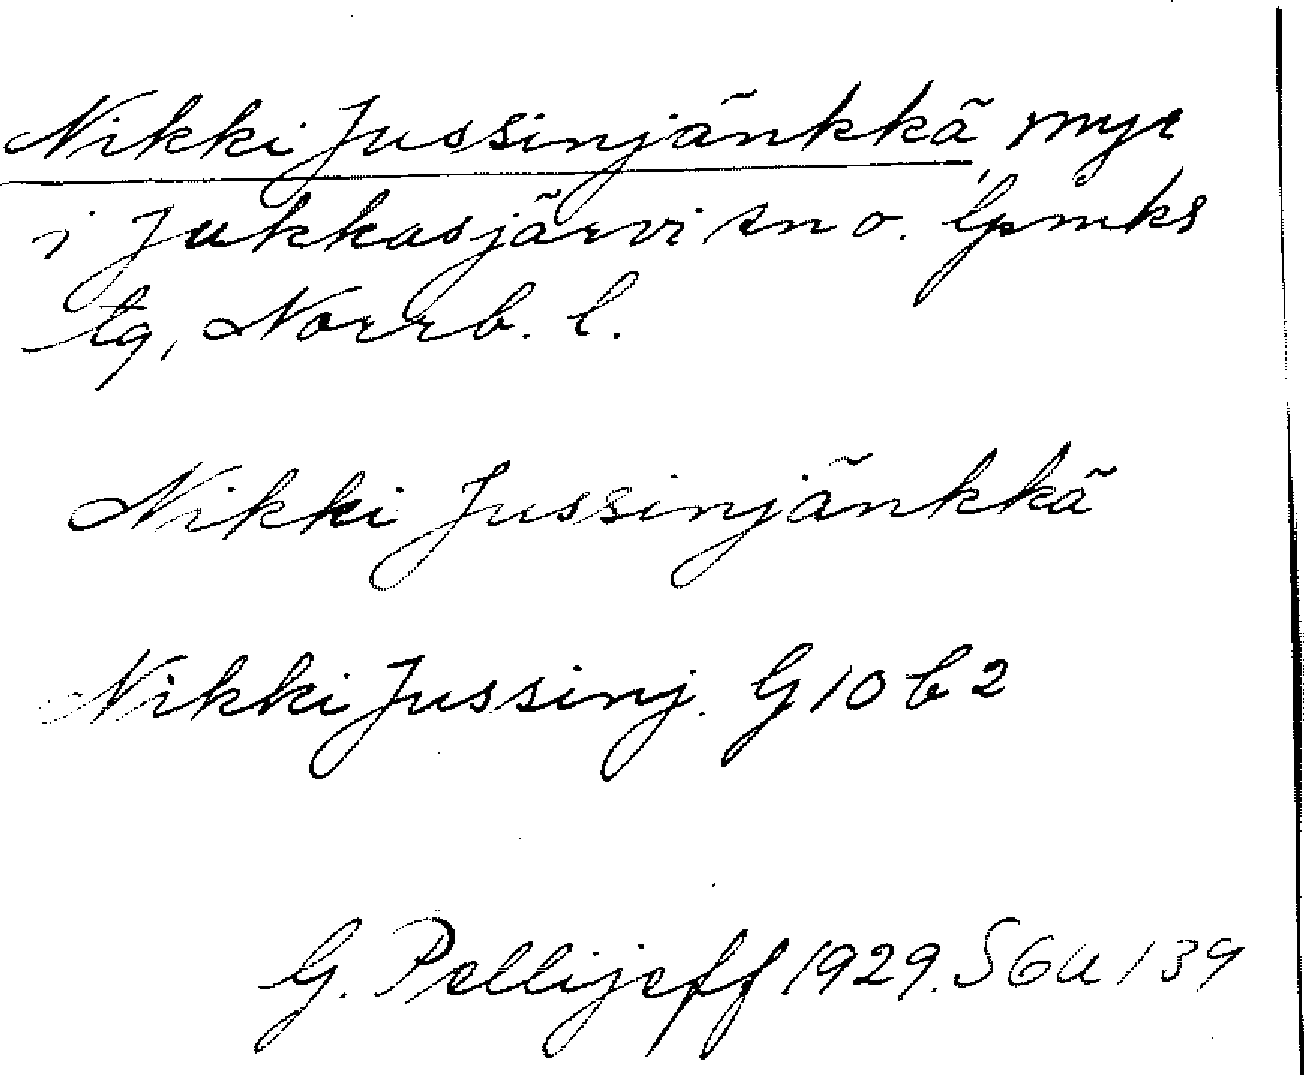 Nikki Jussinjänkkä, myr
i Jukkasjärvi sn o. lpmks
tg, Norrb. l.
Nikki Jussinjänkkä
Nikki Jussinj. G 10 b 2
G. Pellijeff 1929. SGU 139